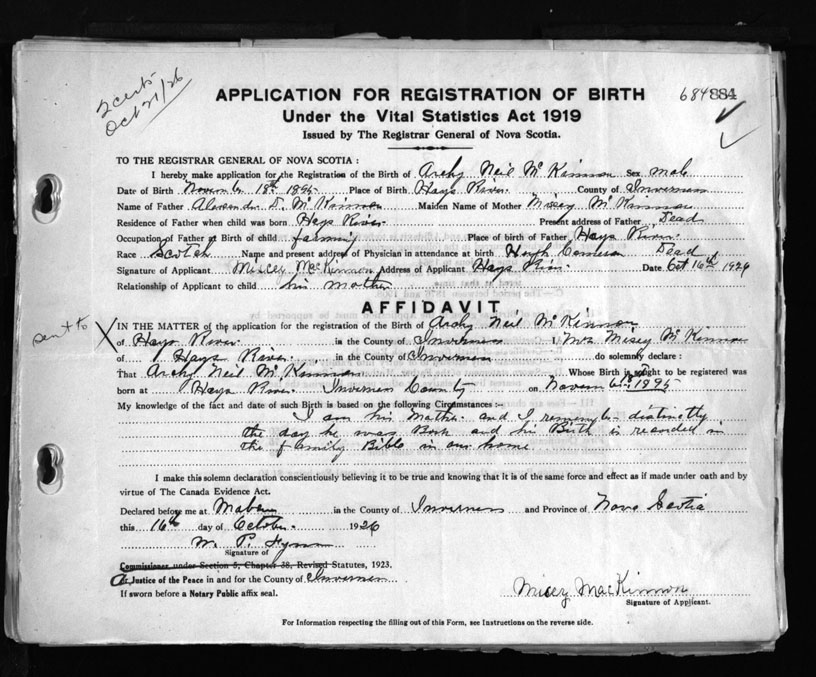 2 certs
Oct 21/26
APPLICATION FOR REGISTRATION OF BIRTH
684 884
Under the Vital Statistics Act 1919
Issued by The Registrar General of Nova Scotia.
TO THE REGISTRAR GENERAL OF NOVA SCOTIA :
I hereby make application for the Registration of the Birth of Archy Neil McKinnon Sex male
Date of Birth November 18th 1895 Place of Birth Hays River County of Inverness
Name of Father D. McKinnon Maiden Name of Mother Misey McKinnon
Residence of Father when child was born Hays River Present address of Father Dead
Occupation of Father at Birth of child farming Place of birth of Father Hays River
Race Scotch Name and present address of Physician in attendance at birth Hugh Cameron Dead
Signature of Applicant Miscey McKinnon Address of Applicant Hays River Date Oct 16th 1926
Relationship of Applicant to child his mother
AFFIDAVIT
sent to
IN THE MATTER of the application for the registration of the Birth of Archy Neil McKinnon
of Hays River is the County of Inverness I, Mrs Misey McKinnon
of Hays River in the County of Inverness do solemnly declare :
That Archy Neil McKinnon Whose Birth is sought to be registered was
born at Hays River Inverness County on 1895
My knowledge of the fact and date of such Birth is based on the following Circumstances :-
I am his Mother and I remember distinctly
the day he was Born and his Birth is recorded in
the family Bible in our home
I make this solemn declaration conscientiously believing it to be true and knowing that it is of the same force and effect as if made under oath and by
virtue of The Canada Evidence Act.
Declared before me at Mabou in the County of Inverness and Province of Nova Scotia
this 16th day of October 1926
Signature of
Commissioner under Section 5, Chapter 38, Revised Statutes, 1923.
Justice of the Peace in and for the County of Inverness
If sworn before a Notary Public affix seal.
Misey MacKinnon
Signature of Applicant.
For Information respecting the filling out of this Form, see Instructions on the reverse side.